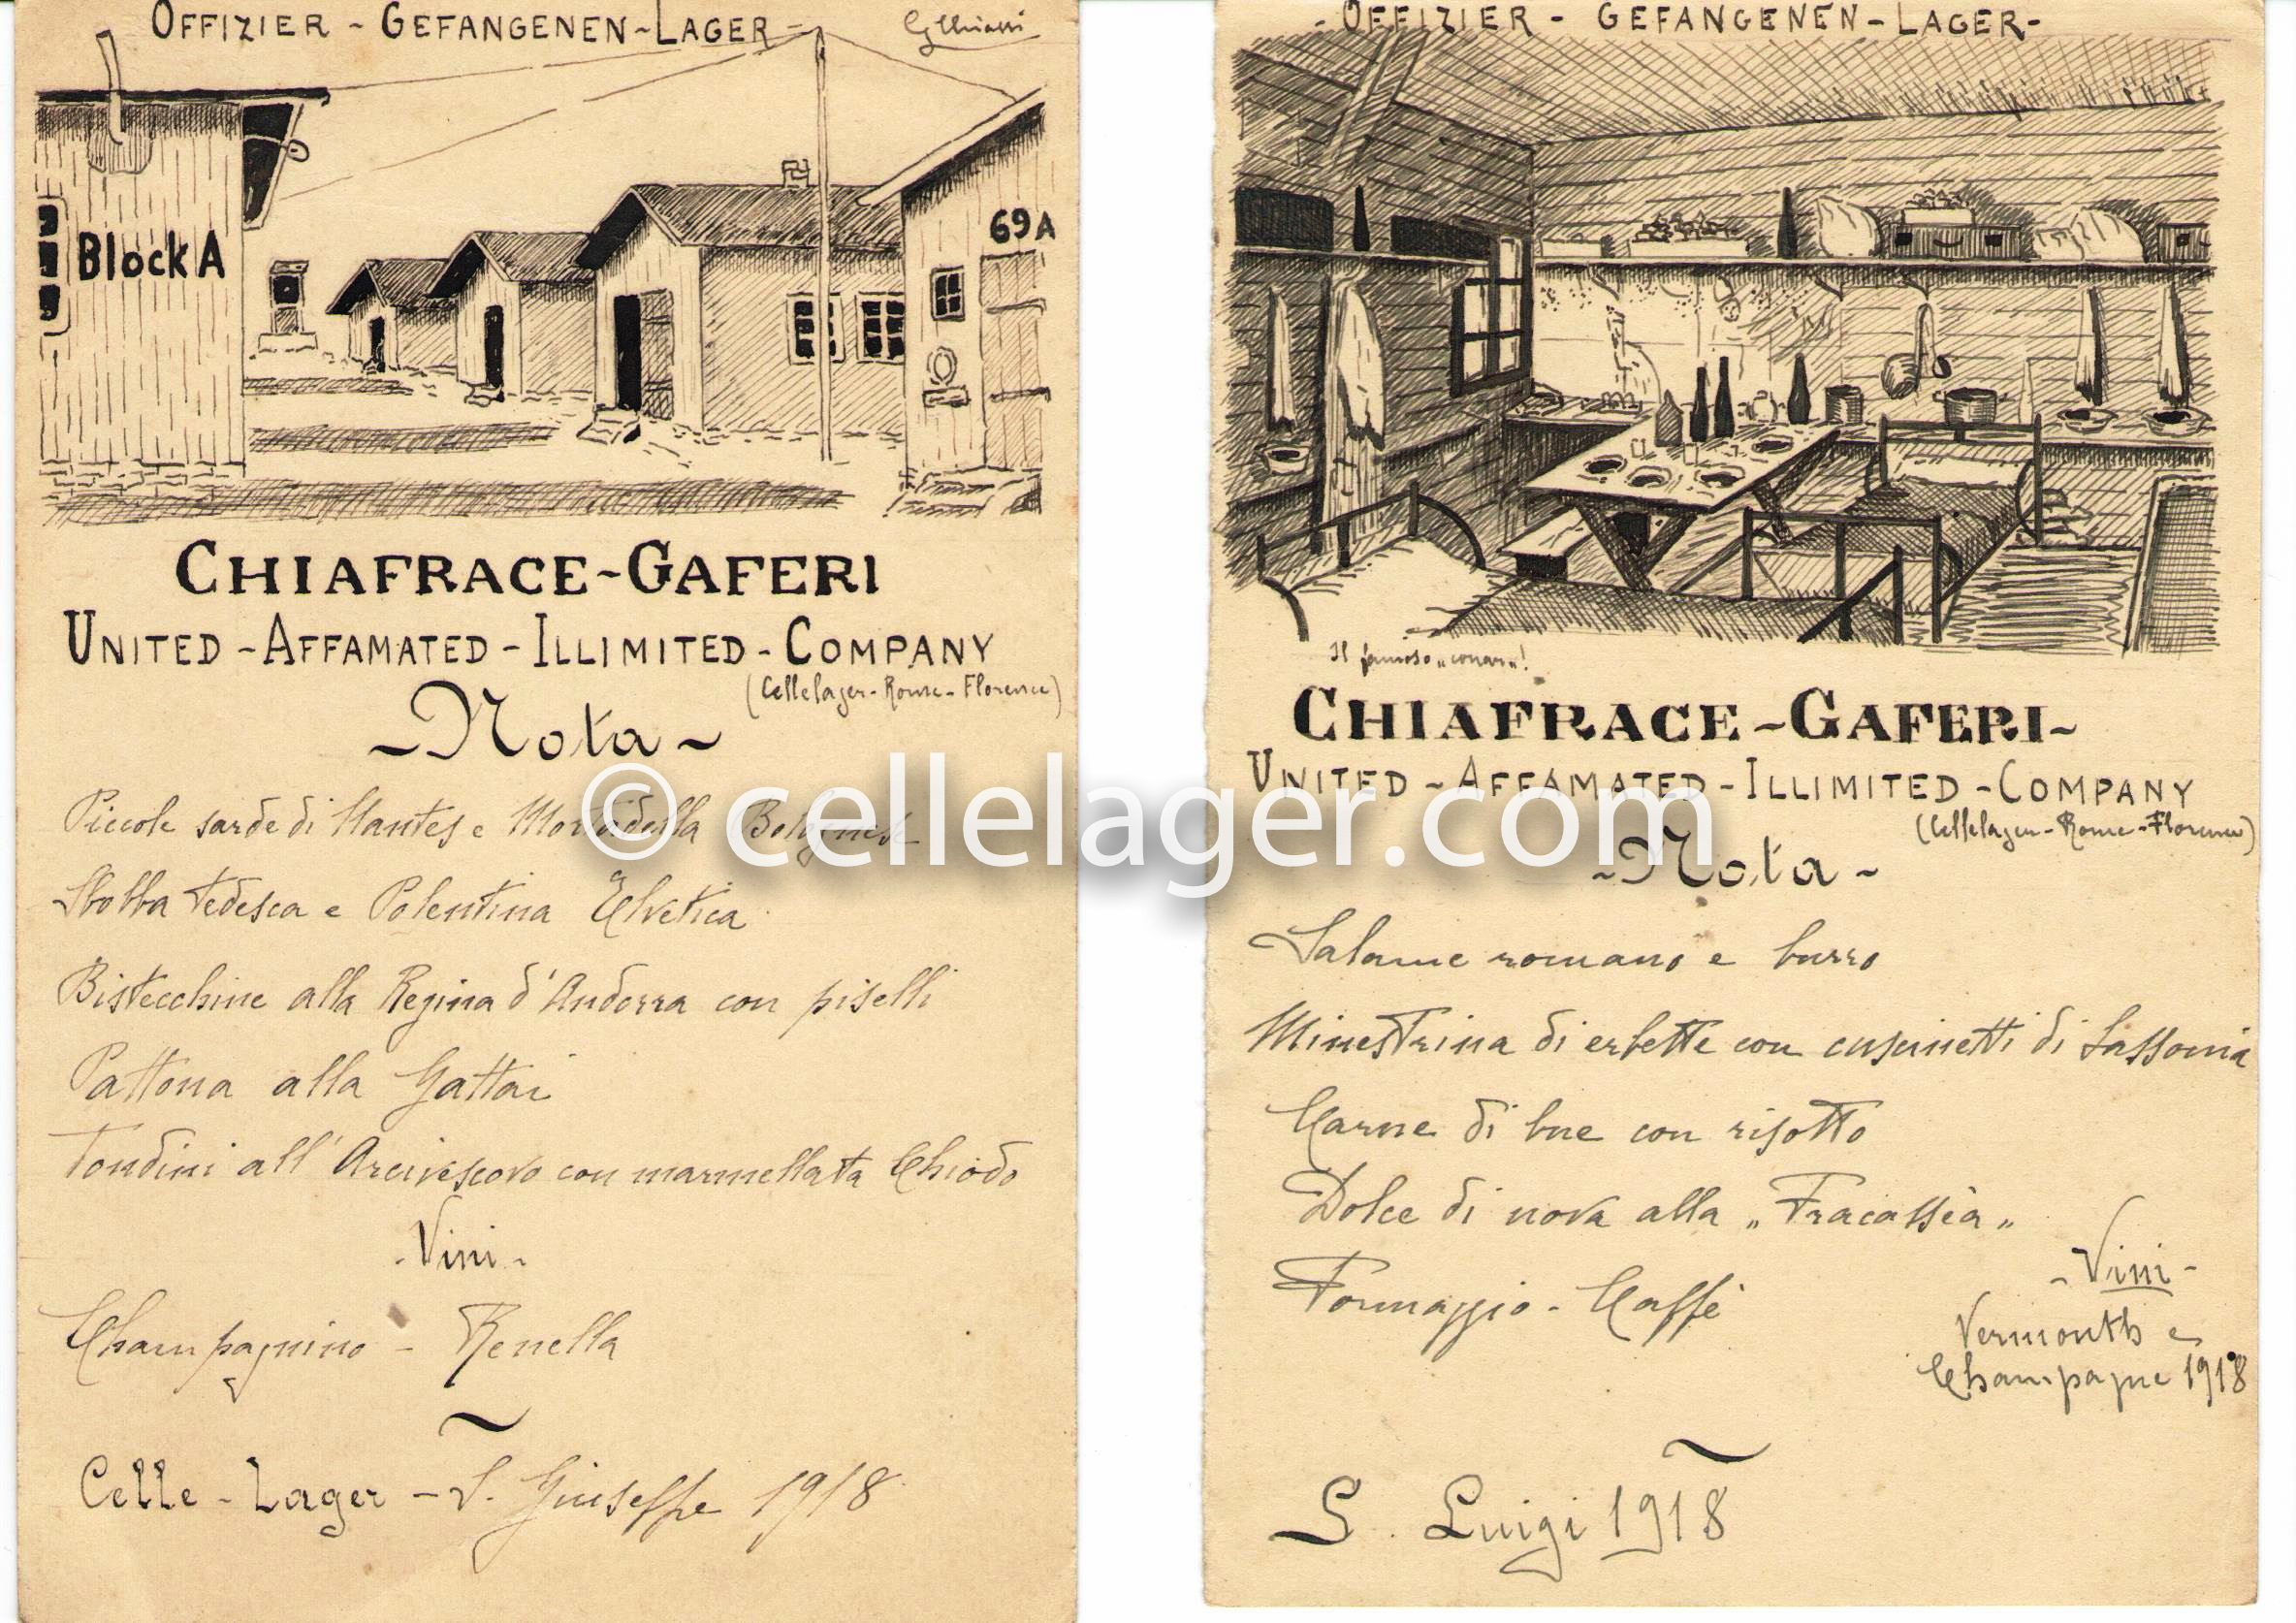 OFFIZIER - GEFANGENEN - LAGER -
Block A
69 A
CHIAFRACE - GAFERI
UNITED - AFFAMATED - ILLIMITED - COMPANY
(Cellelager - Rome - Florence)
~ Nota ~
Piccole sarde di Nantes e Mortadella Bolognese
Sbobba Tedesca e Polentina Elvetica
Bistecchine alla Regina d'Andorra con piselli
Pattona alla Gattai
Tondini all'Arcivescovo con marmellata Chiodo
- Vini -
Champagnino - Renella
Celle - Lager - S. Giuseppe 1918
- OFFIZIER - GEFANGENEN - LAGER -
Il famoso
CHIAFRACE - GAFERI -
UNITED - AFFAMATED - ILLIMITED - COMPANY
(Cellelager - Rome - Florence)
~ Nota ~
Salame romano e burro
Minestrina di erbette con cuscinetti di Sassonia
Carne di bue con risotto
Dolce di nova alla „Fracassia„
Formaggio - Caffè
- Vini -
Vermouth e
Champagne 1918
S. Luigi 1918
© cellelager.com